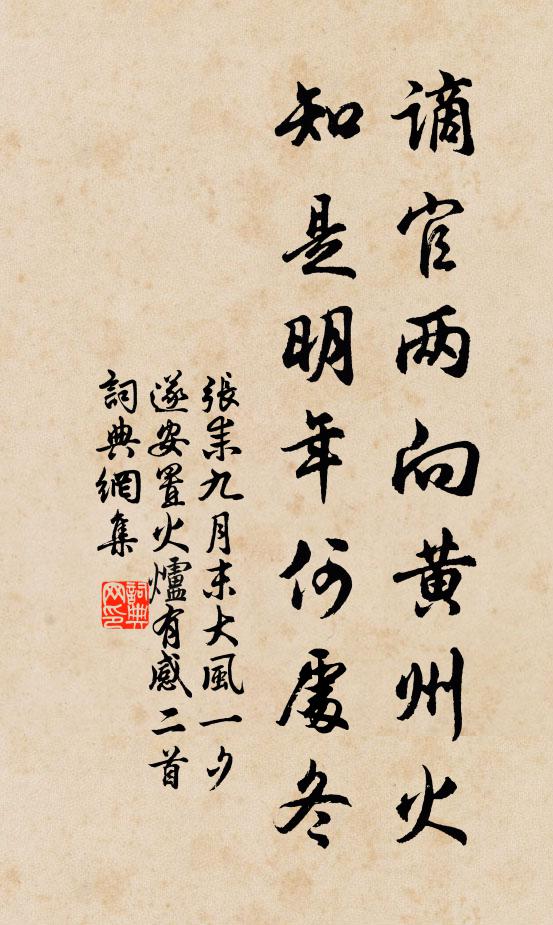 谪官两向黄州火
知是明年何處冬
張耒九月末大風一夕
遂安置火爐有感二首
詞典網集
詞典
网印